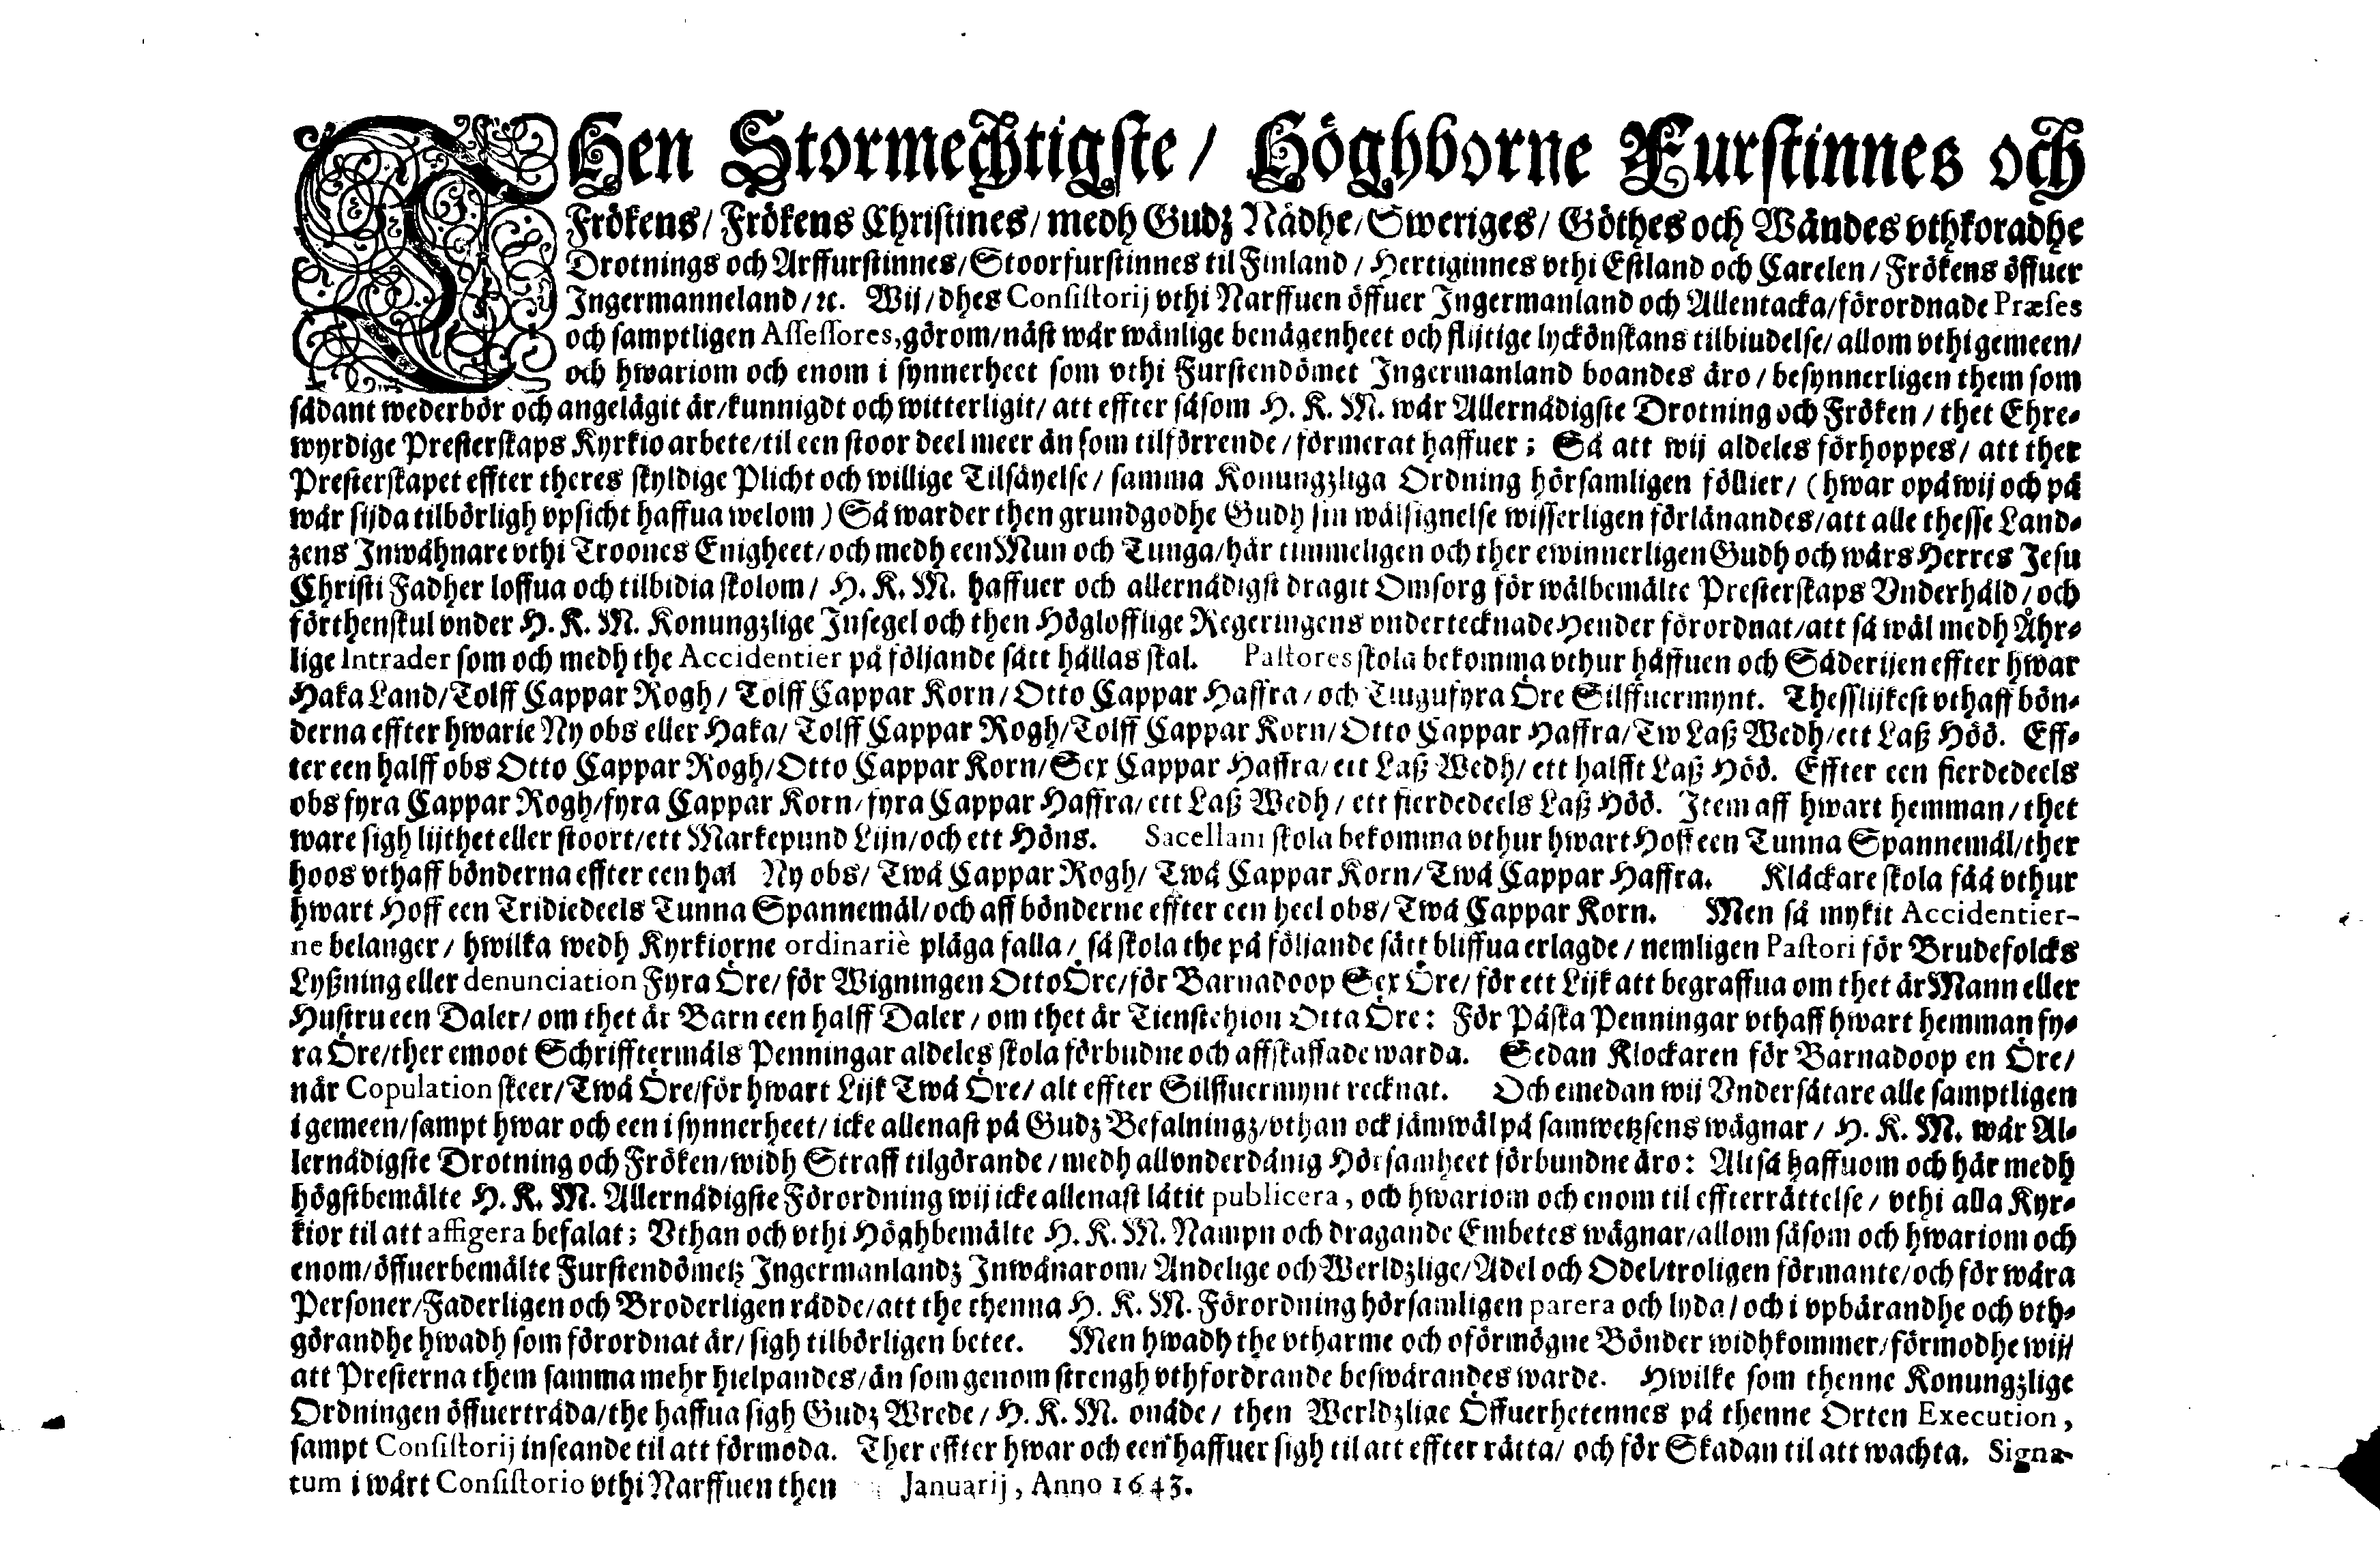 SHen Stormechtigste/ Höghborne Furstinnes och
Frökens/ Frökens Christines/ medh Gudz Nådhe/ Sweriges/ Göthes och Wändes vthkoradhe
Drotnings och Arffurstinnes/ Stoorfurstinnes til Finland/ Hertiginnes vthi Estland och Carelen/ Frökens öffuer
Ingermanneland/ ꝛc. Wij/ dhes Consistorij vthi Narffuen öffuer Ingermanland och Allentacka/ förordnade Præses
och samptligen Assessores, görom/ näst wår wänlige benägenheet och flijtige lyckönskans tilbiudelse/ allom vthi gemeen/
och hwariom och enom i synnerheet som vthi Furstendömet Ingermanland boandes äro/ besynnerligen them som
sådant wederbör och angelägit är/ kunnigdt och witterligit/ att effter såsom H. K. M. wår Allernådigste Drotning och Fröken/ thet Ehre-
wyrdige Presterskaps Kyrkio arbete/ til een stoor deel meer än som tilförrende/ förmerat haffuer; Så att wij aldeles förhoppes/ att thet
Presterskapet effter theres skyldige Plicht och willige Tilsäyelse/ samma Konungzliga Ordning hörsamligen föllier/ (hwar opå wij och på
wår sijda tilbörligh vpsicht haffua welom) Så warder then grundgodhe Gudh sin wälsignelse wisserligen förlänandes/ att alle thesse Land-
zens Inwåhnare vthi Troones Enigheet/ och medh een Mun och Tunga/ här timmeligen och ther ewinnerligen Gudh och wårs Herres Jesu
Christi Fadher loffua och tilbidia skolom/ H. K. M. haffuer och allernådigst dragit Omsorg för wälbemälte Presterskaps Vnderhåld/ och
förthenskul vnder H. K. M. Konungzlige Insegel och then Höglofflige Regeringens vndertecknade Hender förordnat/ att så wäl medh Åhr-
lige Intrader som och medh the Accidentier på följande sätt hållas skal. Pastores skola bekomma vthur håffuen och Säderijen effter hwar
Haka Land/ Tolff Cappar Rogh/ Tolff Cappar Korn/ Otto Cappar Haffra/ och Tiugufyra Öre Silffuermynt. Thesslijkest vthaff bön-
derna effter hwarie Ny obs eller Haka/ Tolff Cappar Rogh/ Tolff Cappar Korn/ Otto Cappar Haffra/ Tw Laß Wedh/ ett Laß Höö. Eff-
ter een halff obs Otto Cappar Rogh/ Otto Cappar Korn/ Sex Cappar Haffra/ ett Laß Wedh/ ett halfft Laß Höö. Effter een fierdedeels
obs fyra Cappar Rogh/ fyra Cappar Korn/ fyra Cappar Haffra/ ett Laß Wedh/ ett fierdedeels Laß Höö. Item aff hwart hemman/ thet
ware sigh lijthet eller stoort/ ett Markepund Lijn/ och ett Höns. Sacellani skola bekomma vthur hwart Hoff een Tunna Spannemål/ ther
hoos vthaff bönderna effter een hal Ny obs/ Twå Cappar Rogh/ Twå Cappar Korn/ Twå Cappar Haffra. Kläckare skola fåå vthur
hwart Hoff een Tridiedeels Tunna Spannemål/ och aff bönderne effter een heel obs/ Twå Cappar Korn. Men så mykit Accidentier-
ne belanger/ hwilka wedh Kyrkiorne ordinariè pläga falla/ så skola the på följande sätt bliffua erlagde/ nemligen Pastori för Brudefolcks
Lyßning eller denunciation Fyra Öre/ för Wigningen Otto Öre/ för Barnadoop Sex Öre/ för ett Lijk att begraffua om thet är Mann eller
Hustru een Daler/ om thet är Barn een halff Daler/ om thet är Tienstehion Otta Öre: För Påska Penningar vthaff hwart hemman fy-
ra Öre/ ther emoot Schrifftermåls Penningar aldeles skola förbudne och affskaffade warda. Sedan Klockaren för Barnadoop en Öre/
när Copulation skeer/ Twå Öre/ för hwart Lijk Twå Öre/ alt effter Silffuermynt recknat. Och emedan wij Vndersåtare alle samptligen
i gemeen/ sampt hwar och een i synnerheet/ icke allenast på Gudz Befalningz/ vthan ock jämwäl på samwetzsens wägnar/ H. K. M. wår Al-
lernådigste Drotning och Fröken/ widh Straff tilgörande/ medh all vnderdånig Hörsamheet förbundne äro: Altså haffuom och här medh
högstbemälte H. K. M. Allernådigste Förordning wij icke allenast låtit publicera, och hwariom och enom til effterrättelse/ vthi alla Kyr-
kior til att affigera befalat; Vthan och vthi Höghbemälte H. K. M. Nampn och dragande Embetes wägnar/ allom såsom och hwariom och
enom/ öffuerbemälte Furstendömetz Ingermanlandz Inwånarom/ Andelige och Werldzlige/ Adel och Odel/ troligen förmante/ och för wåra
Personer/ Faderligen och Broderligen rådde/ att the thenna H. K. M. Förordning hörsamligen parera och lyda/ och i vpbärandhe och vth-
görandhe hwadh som förordnat är/ sigh tilbörligen betee. Men hwadh the vtharme och oförmögne Bönder widhkommer/ förmodhe wij/
att Presterna them samma mehr hielpandes/ än som genom strengh vthfordrande beswärandes warde. Hwilke som thenne Konungzlige
Ordningen öffuerträda/ the haffua sigh Gudz Wrede/ H. K. M. onåde/ then Werldzlige Öffuerhetennes på thenne Orten Execution,
sampt Consistorij inseande til att förmoda. Ther effter hwar och een haffuer sigh til att effter rätta/ och för Skadan til att wachta. Signa-
tum i wårt Consistorio vthi Narffuen then Januarij, Anno 1643.